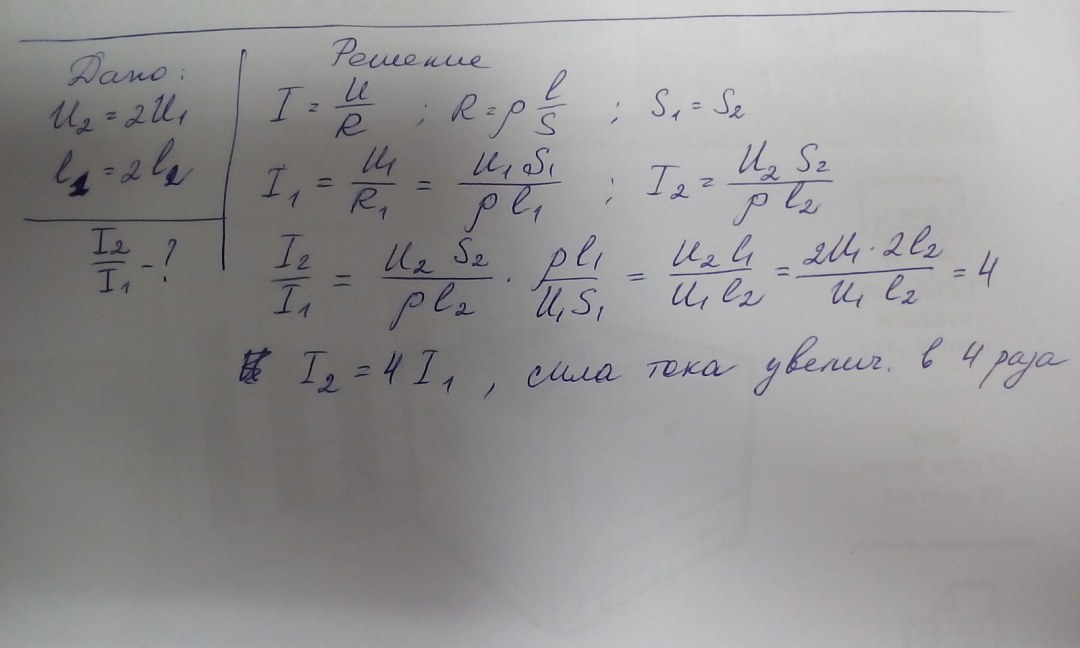 Дано:
U₂ = 2U₁
l₁ = 2l₂
I₂/I₁ - ?
Решение
I = U/R ; R = ρ l/S ; S₁ = S₂
I₁ = U₁/R₁ = U₁S₁/ρl₁ ; I₂ = U₂S₂/ρl₂
I₂/I₁ = U₂S₂/ρl₂ · ρl₁/U₁S₁ = U₂l₁/U₁l₂ = 2U₁·2l₂/U₁l₂ = 4
I₂ = 4I₁, сила тока увелич. в 4 раза